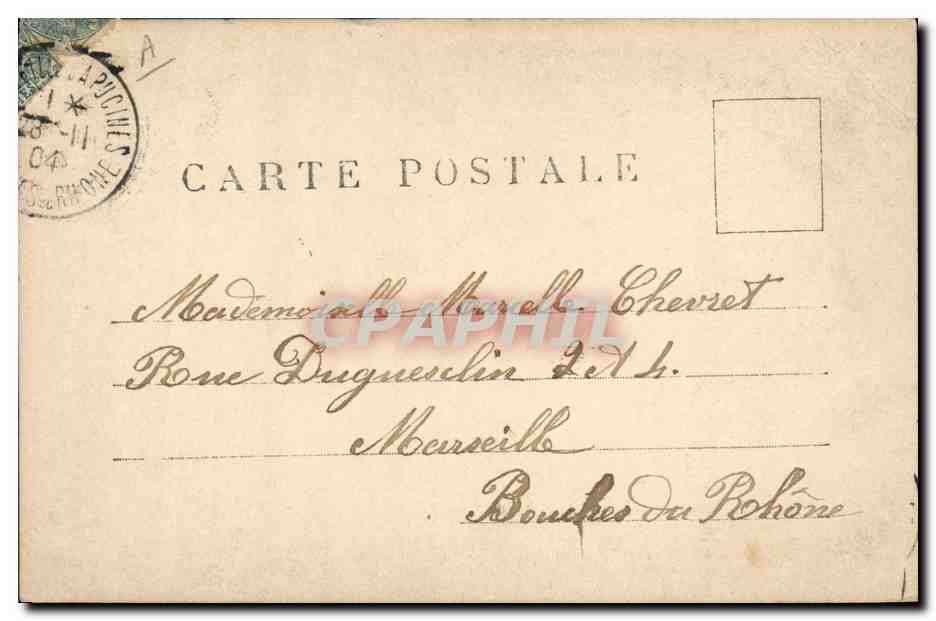 A
CAPUCINES
* 11
04
RHONE
CARTE POSTALE
Mademoiselle Marcelle Chevret
CPAPHIL
Rue Duguesclin 2 A 4.
Marseille
Bouches du Rhône